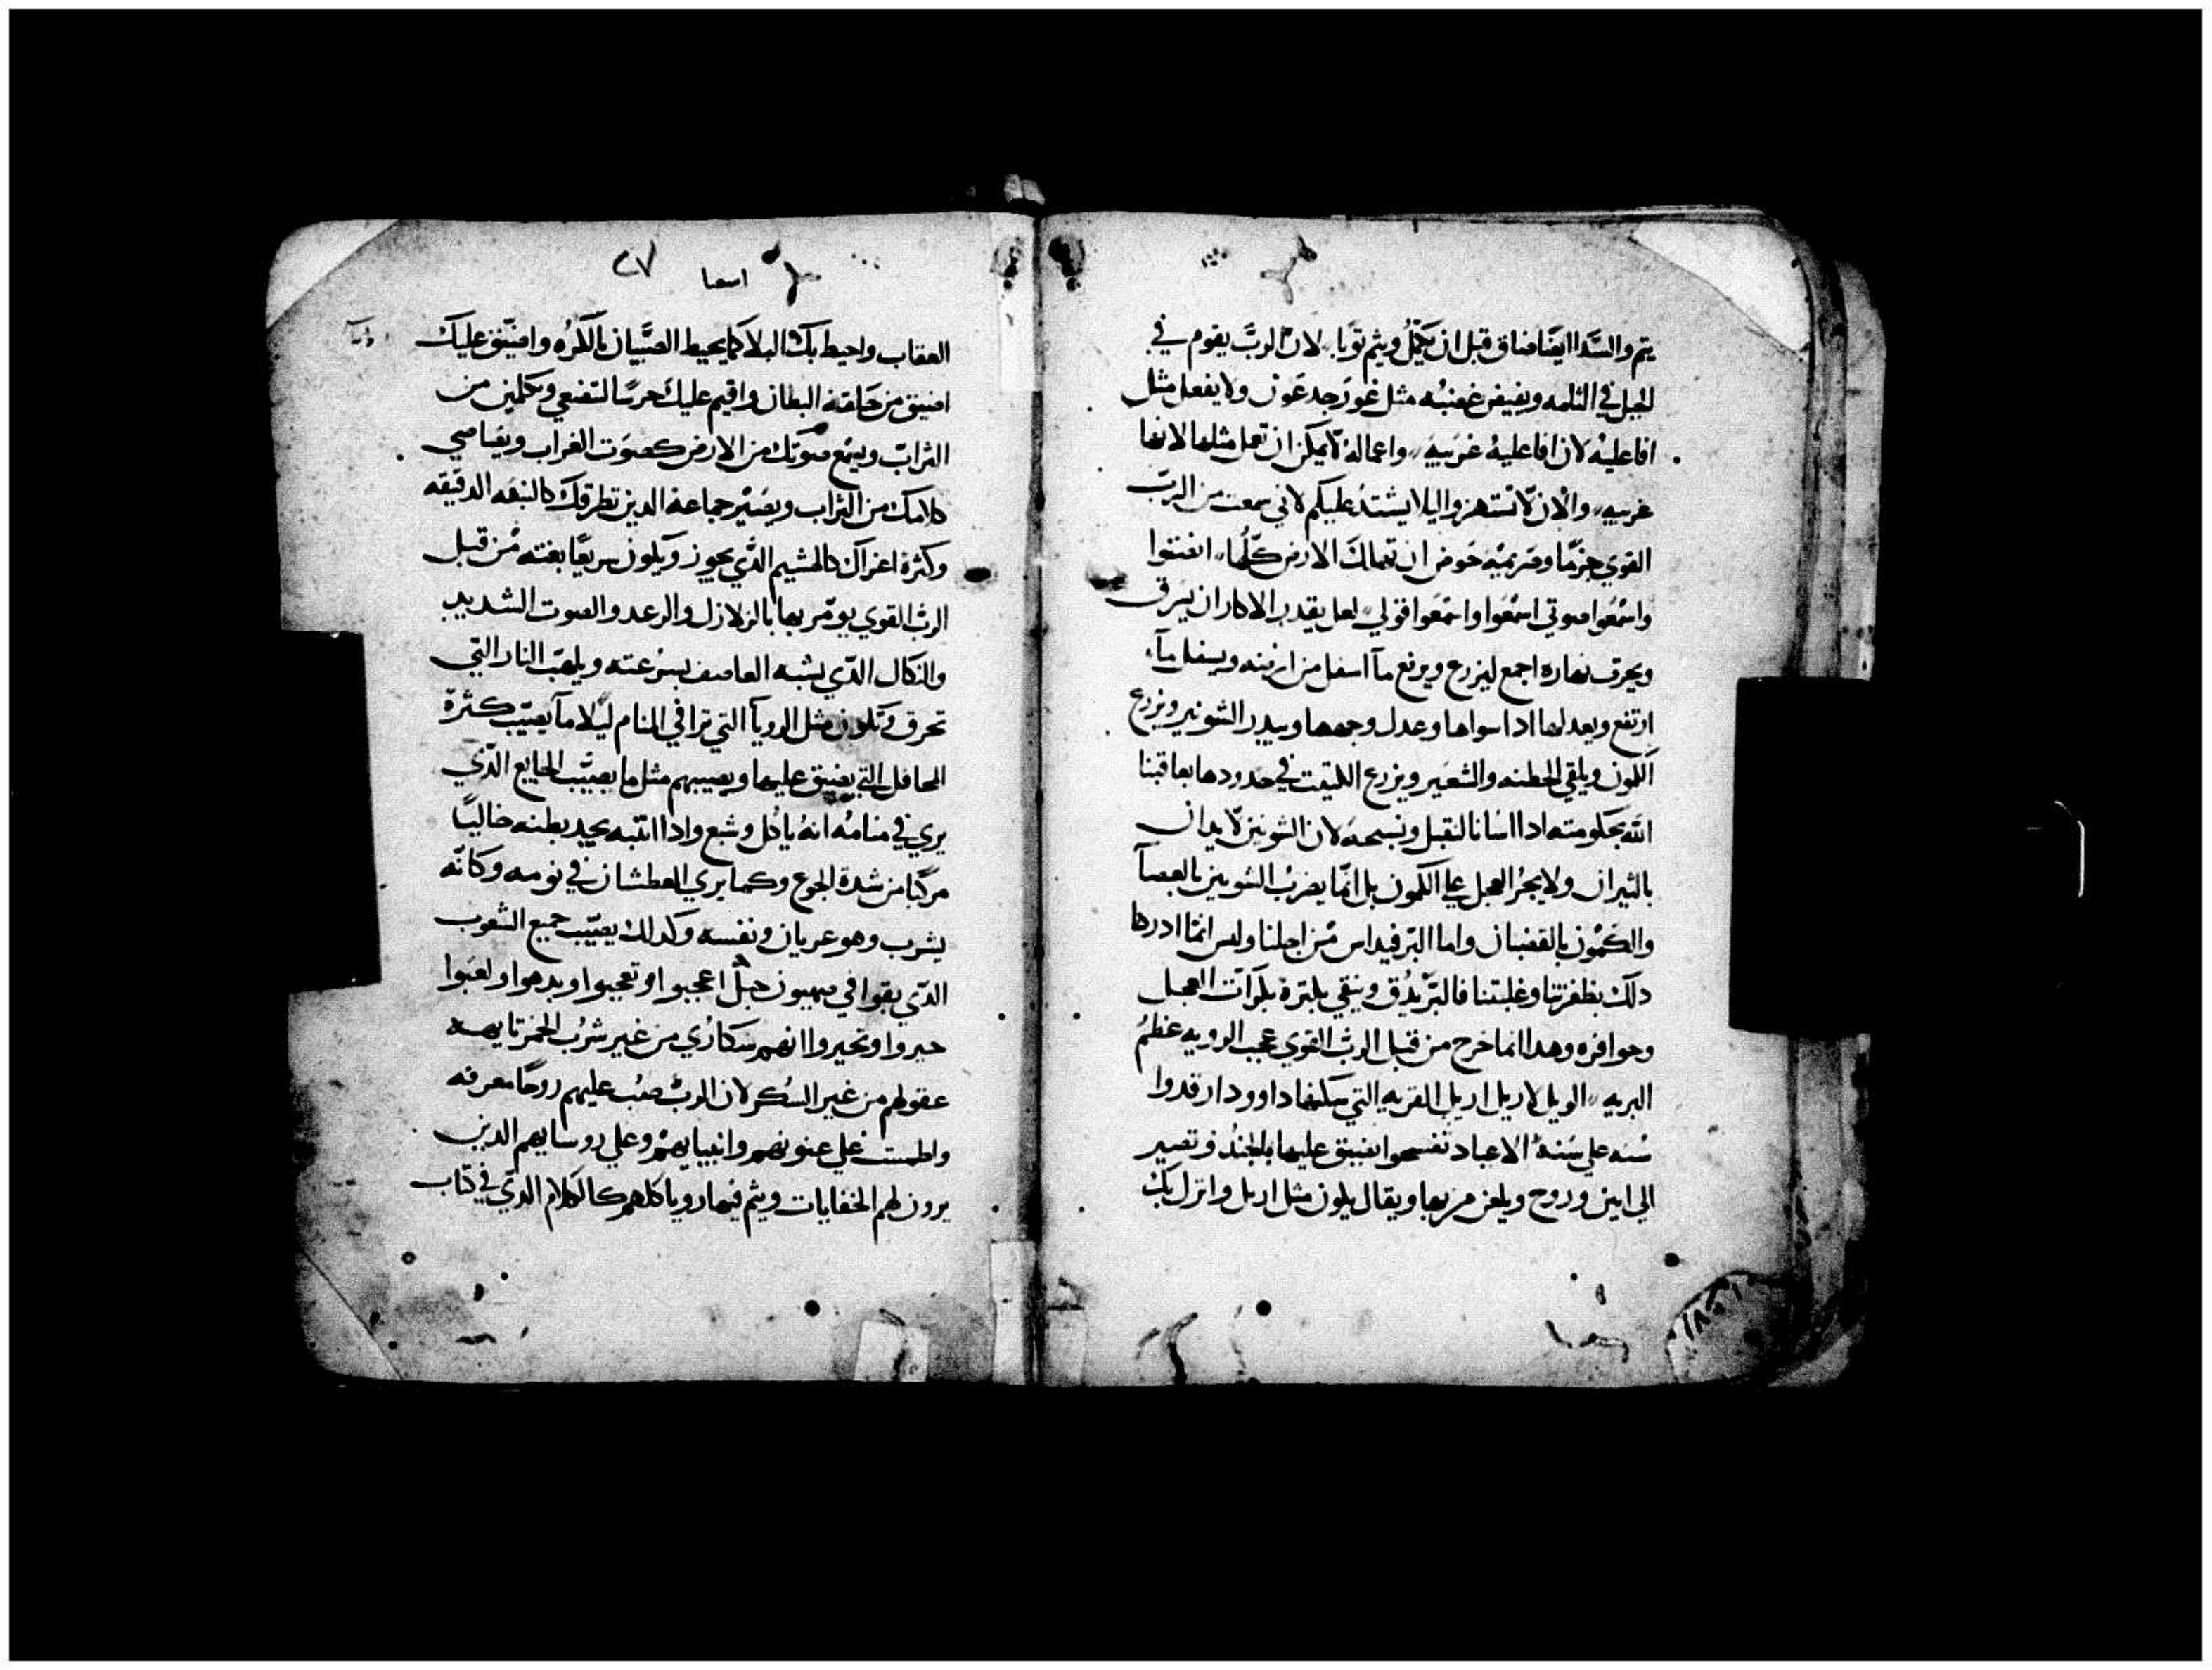 يتم والسدا ايضا ضاق قبل ان يكمل ويتم توبا لان الرب يقوم في
لجبل في الثلمه ويفيض غضبه مثل غور جدعون ولا يفعل مثل
افاعليه لان افاعليه غريبه واعماله لا يمكن ان تعمل مثلها لانها
غريبه والان لا تستهزوا ليلا يشتد عليكم لاني سمعت من الرب
القوي جزما وصريمه حوض ان تهالك الارض كلها انصتوا
واسمعوا صوتي اسمعوا واسمعوا قولي لعل يقدر الاكار ان يسرق
ويحرق نهاره اجمع ليزرع ويرفع ما اسفل من ارضه ويسفل ما
ارتفع ويعدلها اذا سواها وعدل وجهها ويبدر الشونيز ويزرع
الكون ويلقي الحطنه والشعير ويزرع الكتيت في حدودها يعاقبنا
الله بحكومته اذا اسانا لنقبل ونسبحه لان الشونيز لا يداس
بالنيران ولا يجر العجل علي الكمون بل انما يضرب الشونيز بالعصا
والكمون بالقضبان واما البر فيداس من اجلنا وليس انما ادركنا
ذلك بظفرتنا وغلبتنا فالبر يدق وينقي بكثرة بكرات العجل
وحوافره وهذا انما خرج من قبل الرب القوي عجب الرويه عظم
البريه الويل لاريل اريل القريه التي سكنها داوود ارقدوا
سنه علي سنه الاعياد تفسحوا يضيق عليها بالجند وتصير
الي انين ونوح ويلعن من بها ويقال يكون مثل اريل وانزل بك
٢٧
اسعيا
العقاب واحيط بك البلا كما يحيط الصبيان بالكره واضيق عليك
اضيق من حلقة البطان واقيم عليك حرسا لتضعي وتكلمين من
التراب ويسمع صوتك من الارض كصوت الغراب ويقاصي
كلامك من التراب ويصير جماعة الدين تطرقك كالنهه الدقيقه
وكثرة اعزاك كالهشيم الذي يجوز ويكون سريعا بغته من قبل
الرب القوي يومر بها بالزلازل والرعد والصوت الشديد
والنكال الذي يشبه العاصف بسرعته ويلهب النار التي
تحرق وتكون مثل الرويا التي ترا في المنام ليلا ما يصيب كثرة
المحافل التي يضيق عليها ويصيبهم مثل ما يصيب الجايع الذي
يري في منامه انه ياكل وشبع واذا انتبه يجد بطنه خاليا
مركبا من شدة الجوع وكما يري العطشان في نومه وكانه
يشرب وهو عريان ونفسه وكذلك يصيب جميع الشعوب
الذي بقوا في صهيون جبل اعجبوا وتعجبوا وبدهوا ولعبوا
حيروا وتحيروا انهم سكاري من غير شرب الخمر تايهه
عقولهم من غير السكر لان الرب صب عليهم روحا معرفه
واطمست علي عيونهم وانبيايهم وعلي روسايهم الدين
يرون لهم الخفايات ويتم فيها رويا كلهم كالكلام الذي في كتاب